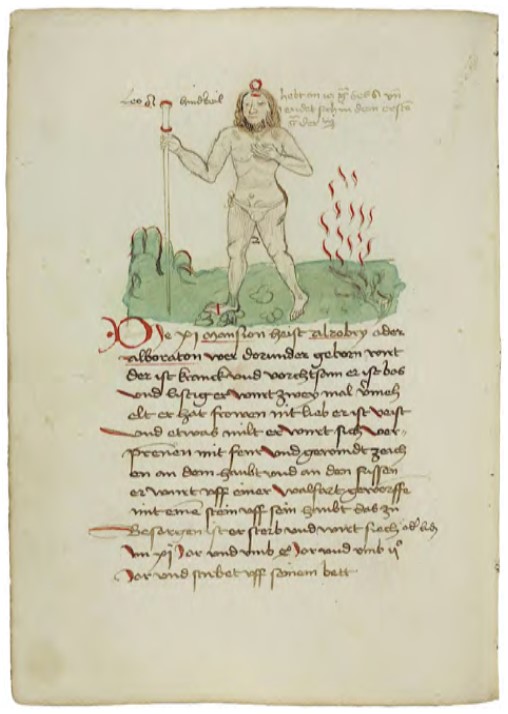 Leo
Die xi mansion heist alzobry oder
alboraton wer dorunder geborn wirt
der ist kranck vnd vorchtsam er ist bos
vnd listig er wirt zwey mal
elt er hat frowen nit lieb er ist veist
vnd etwas milt er wirt sich ver-
prenen mit feur vnd gewindt zeich
en an dem haubt vnd an den fussen
er wirt vff einer walfart geworffe
mit eine stein vff sein haubt das zu
Besorgen ist er sterb vnd wirt siech
Im xj Jor vnd vmb Jor vnd vmb
Jor vnd stirbet vff seinem bett